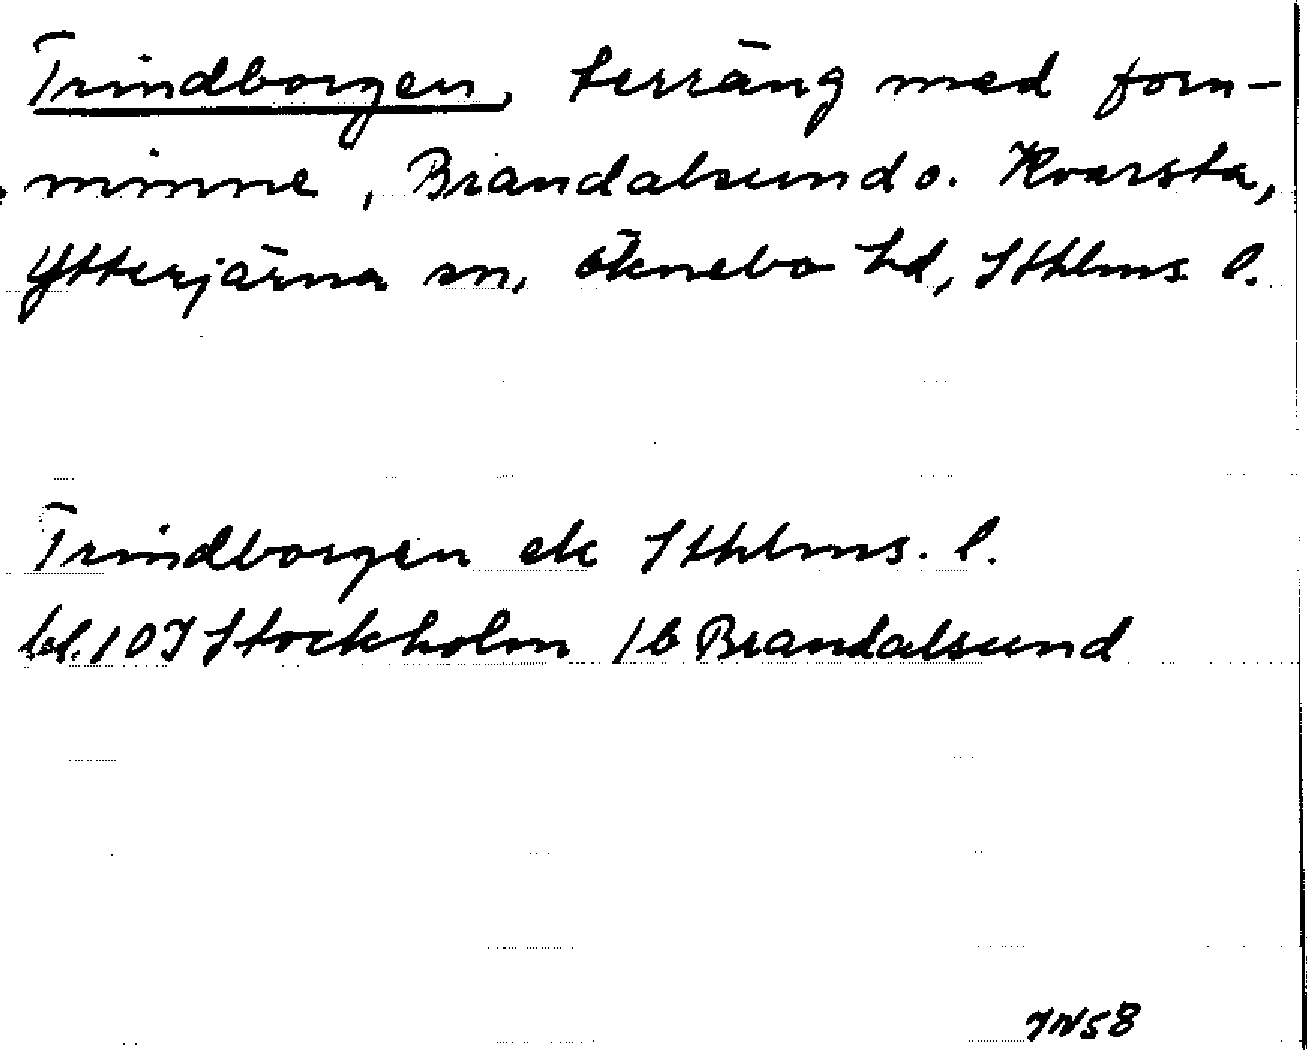 Trindborgen, terräng med forn-
minne, Brandalsund o. Kvarsta,
Ytterjärna sn, Öknebo hd, Sthlms l.
Trindborgen ek Sthlms. l.
bl. 10 I Stockholm 1b Brandalsund
JN58